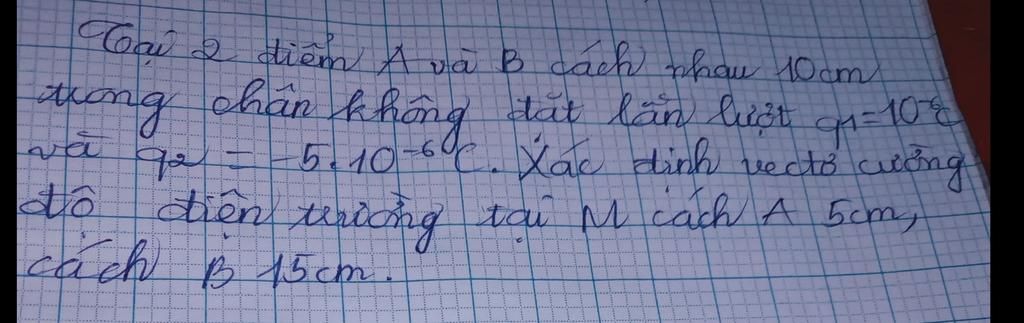 Tại 2 điểm A và B cách nhau 10cm
trong chân không đặt lần lượt q1=10⁻⁶C
và q2 = -5.10⁻⁶C. Xác định vectơ cường
độ điện trường tại M cách A 5cm,
cách B 15cm.